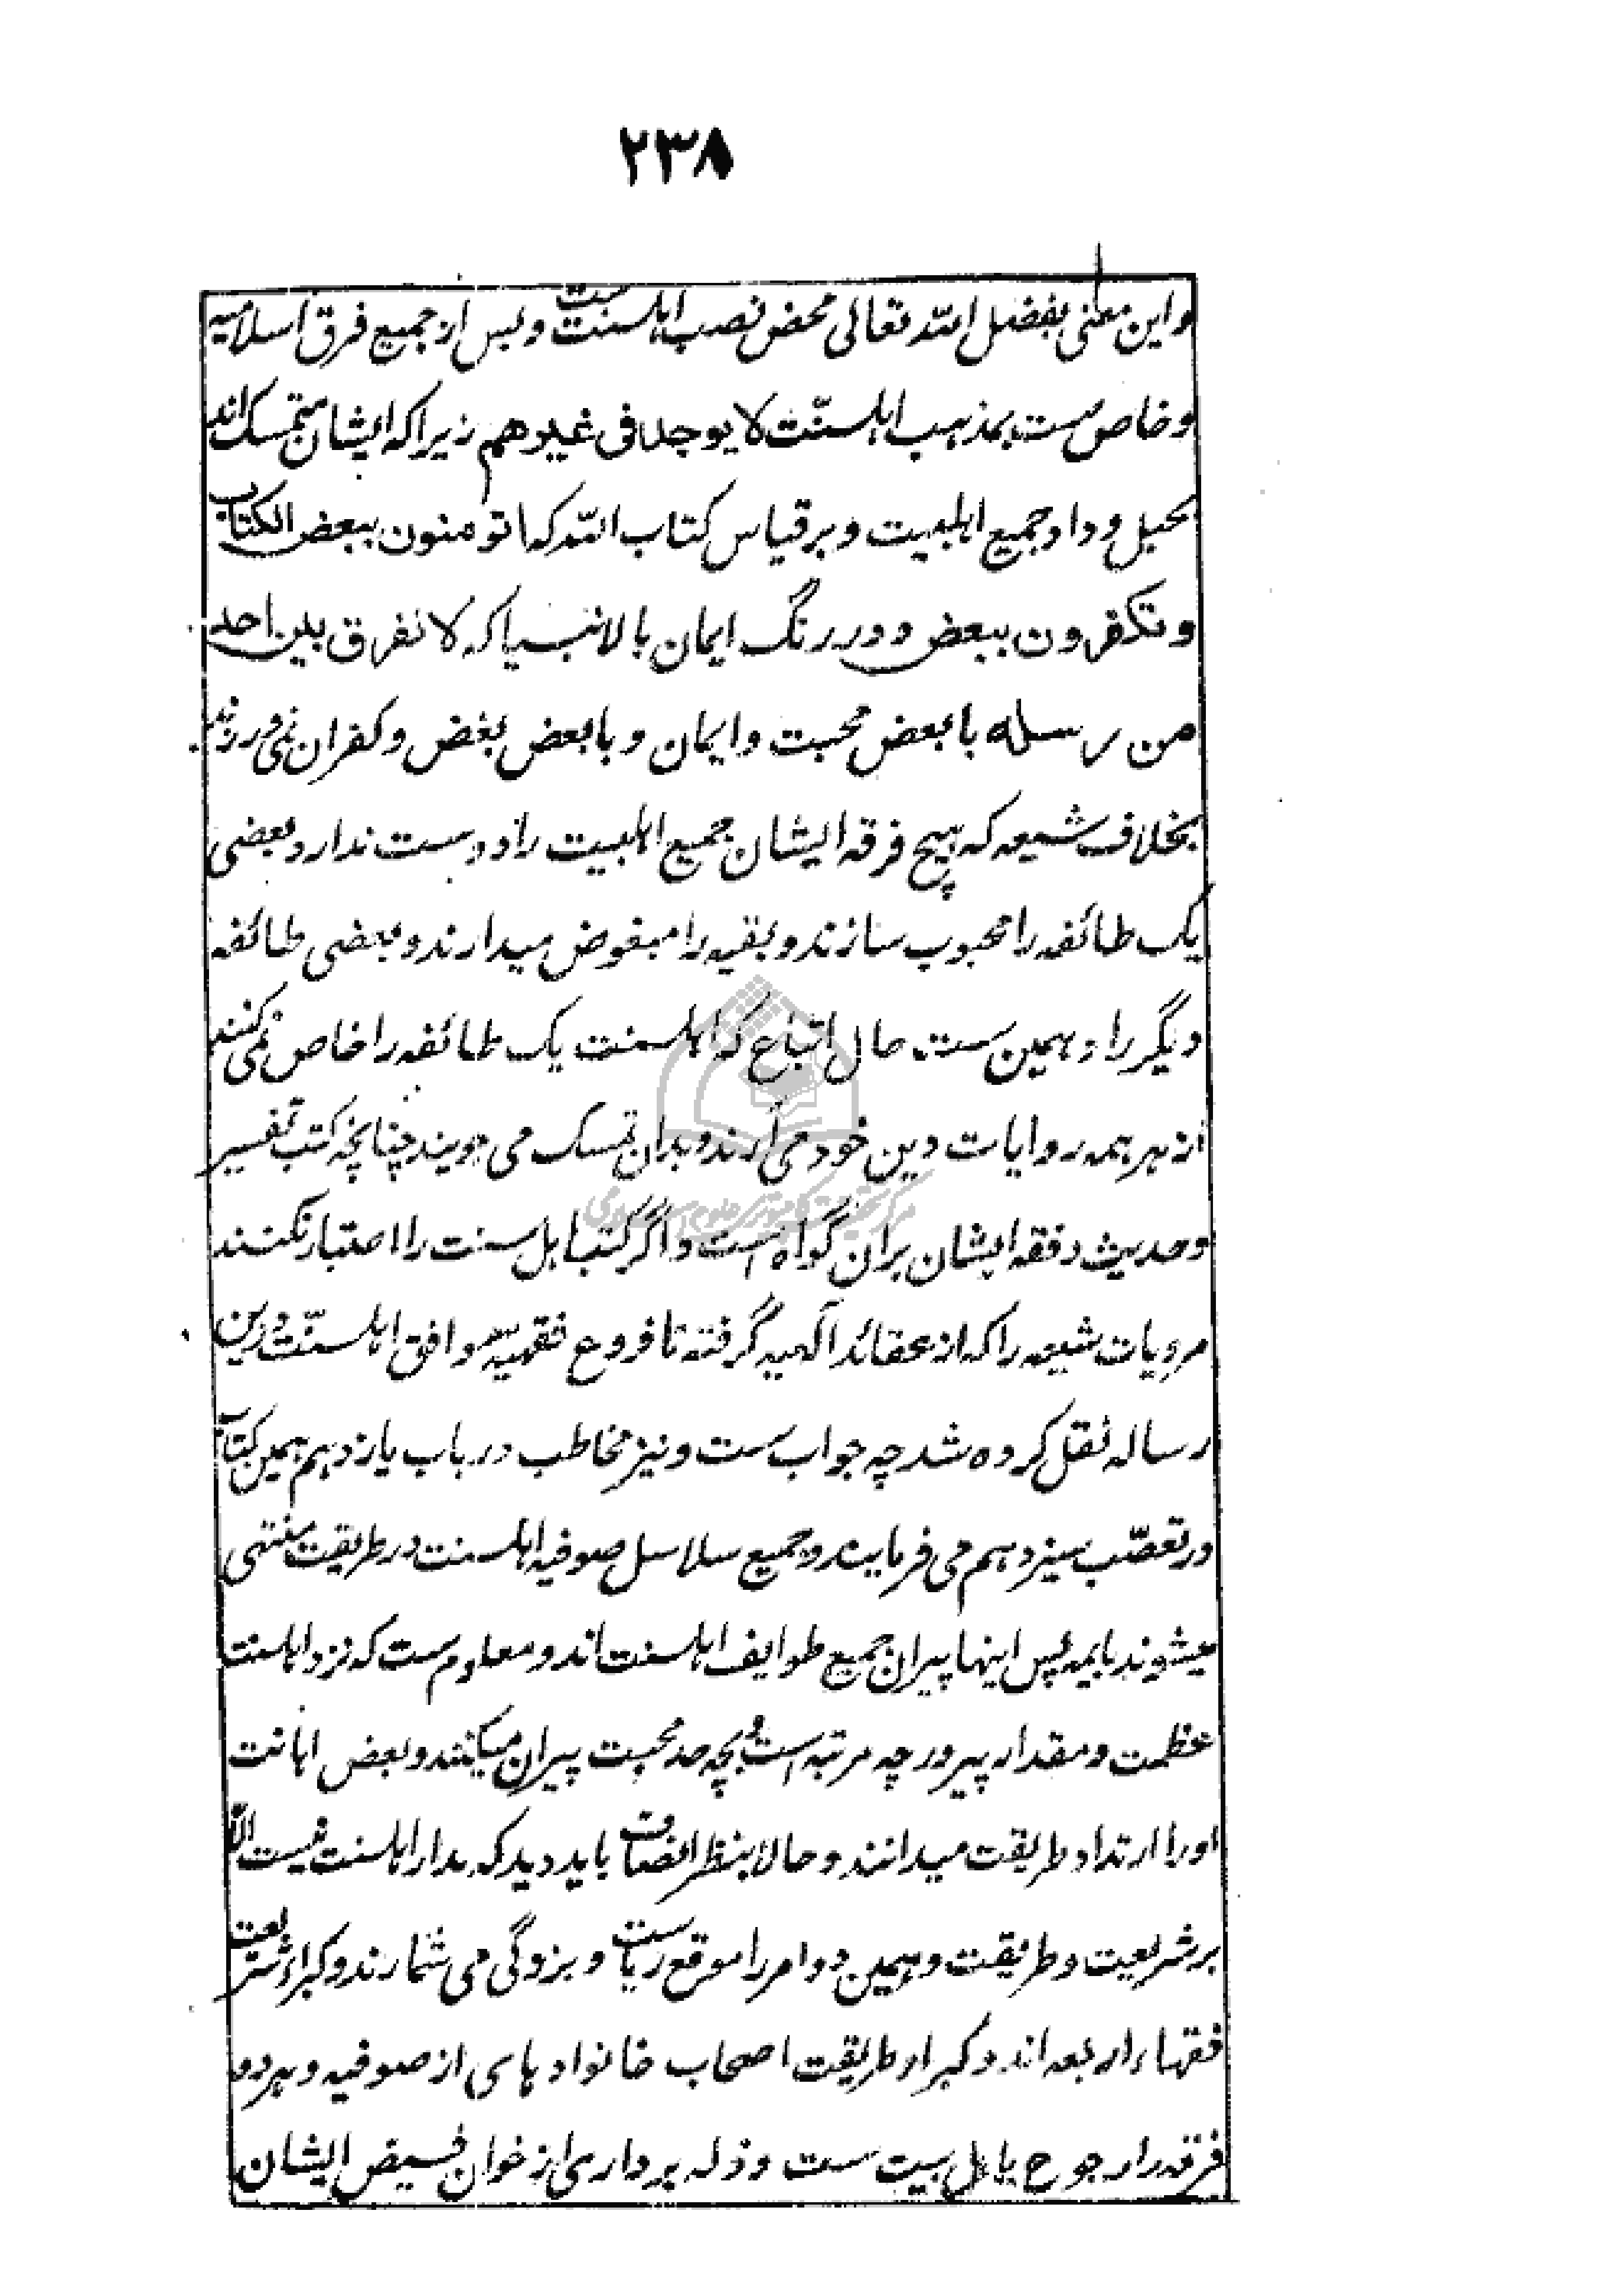 ۲۳۸
و این معنی بفضل الله تعالی محض نصیب اهلسنت است و بس از جمیع فرق اسلامیه
و خاص ست بمذهب اهلسنّت لا یوجد فی غیرهم زیرا که ایشان متمسک اند
بحبل وداد جمیع اهلبیت و بر قیاس کتاب الله که اتومنون ببعض الکتاب
و تکفرون ببعض و در رنگ ایمان بالانبیا که لا نفرق بین احد
من رسله با بعض محبت و ایمان و با بعض بغض و کفران نمی ورزند
بخلاف شیعه که هیچ فرقه ایشان جمیع اهلبیت را دوست ندارد بعضی
یک طائفه را محبوب سازند و بقیه را مبغوض میدارند و بعضی طائفه
دیگر را و همین ست حال اتباع که اهلسنت یک طائفه را خاص نمی کنند
از هر همه روایات دین خود می آرند و بدان تمسک می جویند چنانچه کتب تفسیر
و حدیث و فقه ایشان بران گواه است و اگر کتب اهل سنت را اعتبار نکنند
مرویات شیعه را که از عقائد الهیه گرفته تا فروع فقهیه موافق اهلسنّت درین
رساله نقل کرده شد چه جواب ست و نیز مخاطب در باب یازدهم همین کتاب
در تعصّب سیزدهم می فرمایند و جمیع سلاسل صوفیه اهلسنت در طریقت منتهی
میشوند بایمه پس اینها پیران جمیع طوایف اهلسنت اند و معلوم ست که نزد اهلسنت
عظمت و مقدار پیر در چه مرتبه است و بچه حد محبت پیران میکنند و بعض اهانت
او را ارتداد طریقت میدانند و حالا بنظر انصاف باید دید که مدار اهلسنت نیست الا
بر شریعت و طریقت و همین دو امر را موقع ریاست و بزرگی می شمارند و کبراء شریعت
فقهاء اربعه اند و کبراء طریقت اصحاب خانواد های از صوفیه و هر دو
فرقه را رجوع باهل بیت ست و ذله برداری از خوان فیض ایشان